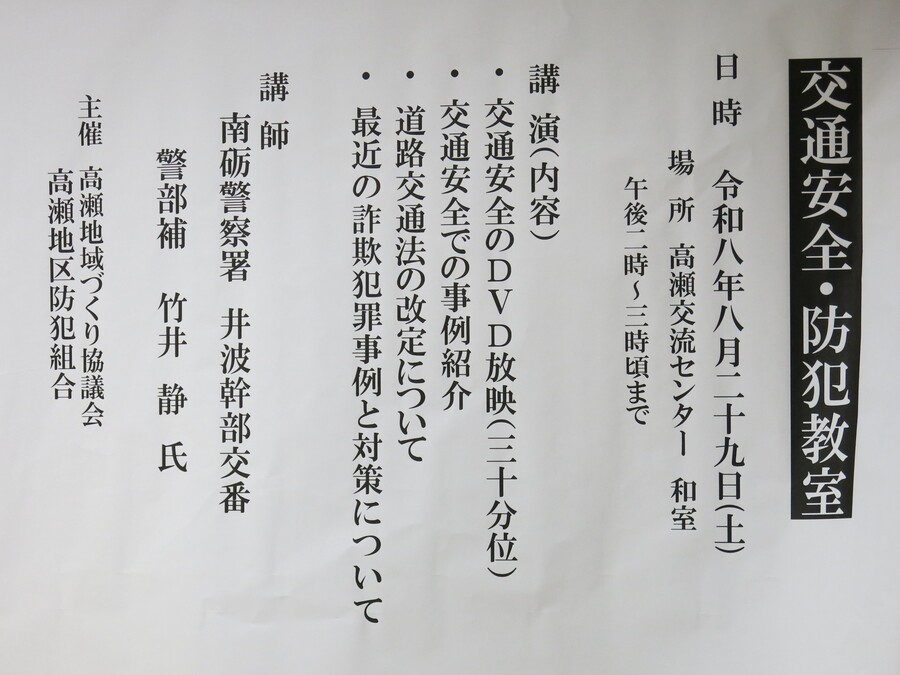 交通安全・防犯教室
日時 令和八年八月二十九日(土)
場所 高瀬交流センター 和室
午後二時～三時頃まで
講演(内容)
・交通安全のDVD放映(三十分位)
・交通安全での事例紹介
・道路交通法の改定について
・最近の詐欺犯罪事例と対策について
講師
南砺警察署 井波幹部交番
警部補 竹井 静 氏
主催 高瀬地域づくり協議会
高瀬地区防犯組合